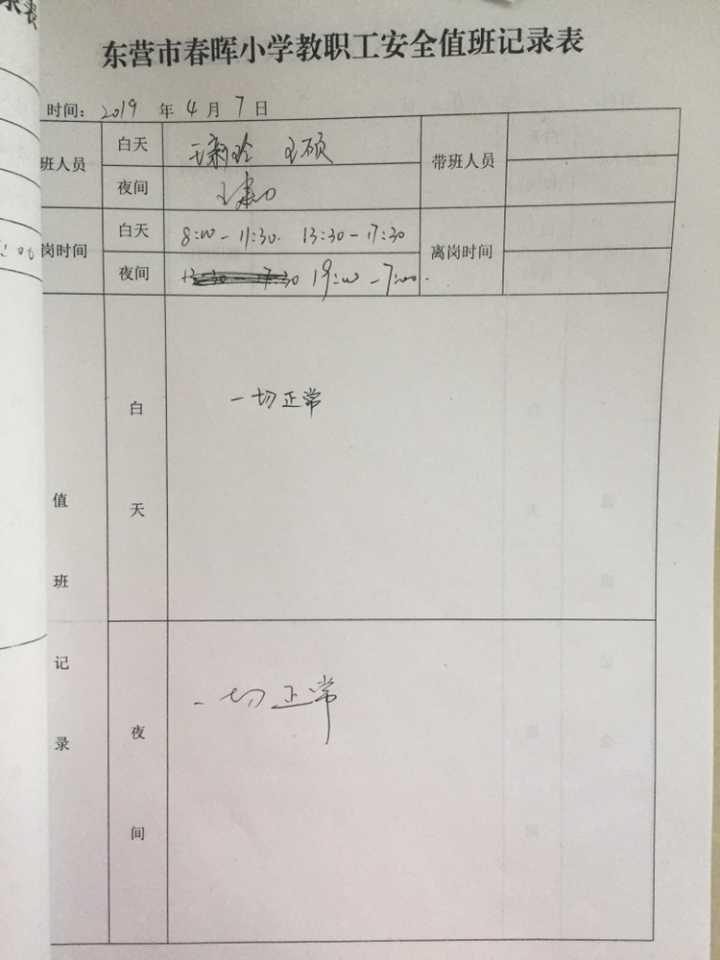 东营市春晖小学教职工安全值班记录表
时间: 2019 年 4 月 7 日
班人员 白天 王 王硕 带班人员
夜间 王
岗时间 白天 8:00-11:30. 13:30-17:30 离岗时间
夜间 13:30-17:30 19:00-7:00.
值班记录
白天 一切正常
夜间 一切正常